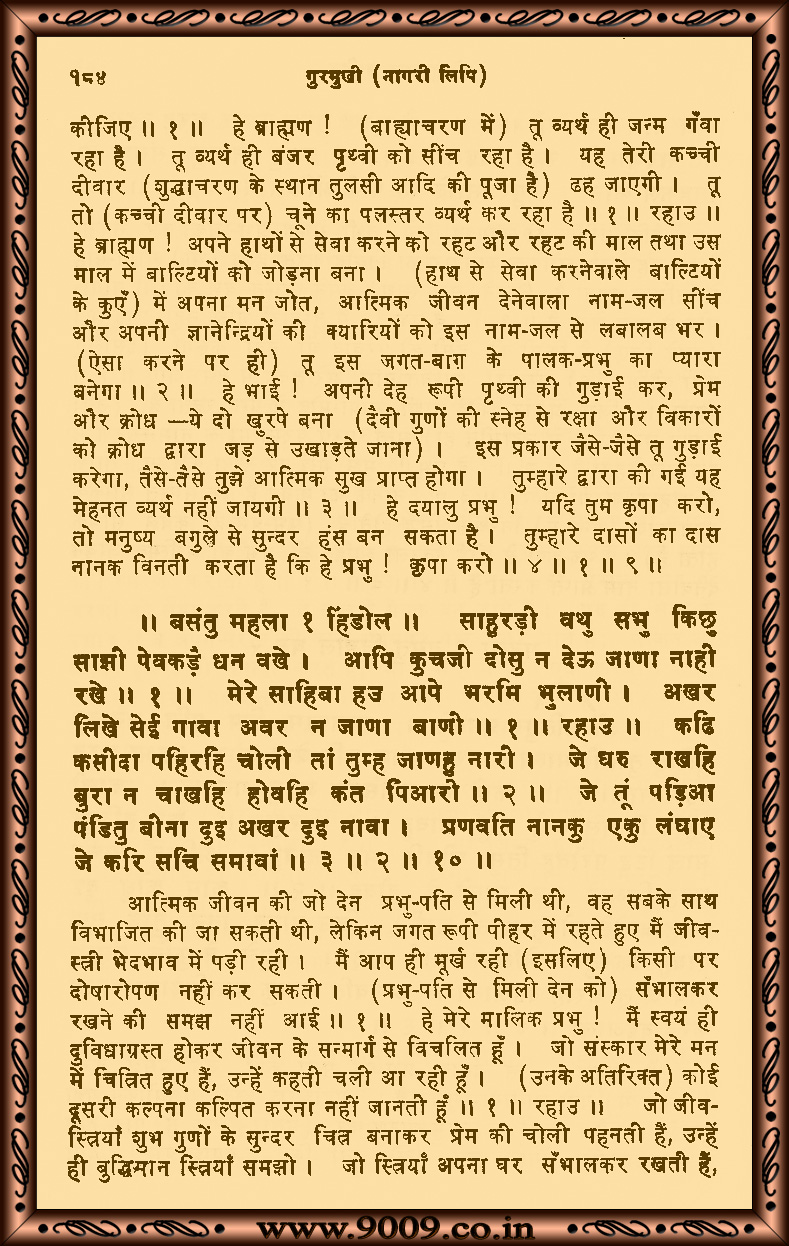 १८४ गुरमुखी (नागरी लिपि)
कीजिए ॥ १ ॥ हे ब्राह्मण ! (बाह्याचरण में) तू व्यर्थ ही जन्म गँवा
रहा है । तू व्यर्थ ही बंजर पृथ्वी को सींच रहा है । यह तेरी कच्ची
दीवार (शुद्धाचरण के स्थान तुलसी आदि की पूजा है) ढह जाएगी । तू
तो (कच्ची दीवार पर) चूने का पलस्तर व्यर्थ कर रहा है ॥ १ ॥ रहाउ ॥
हे ब्राह्मण ! अपने हाथों से सेवा करने को रहट और रहट की माल तथा उस
माल में बाल्टियों को जोड़ना बना । (हाथ से सेवा करनेवाले बाल्टियों
के कुएँ) में अपना मन जोत, आत्मिक जीवन देनेवाला नाम-जल सींच
और अपनी ज्ञानेन्द्रियों की क्यारियों को इस नाम-जल से लबालब भर ।
(ऐसा करने पर ही) तू इस जगत-बाग़ के पालक-प्रभु का प्यारा
बनेगा ॥ २ ॥ हे भाई ! अपनी देह रूपी पृथ्वी की गुड़ाई कर, प्रेम
और क्रोध —ये दो खुरपे बना (दैवी गुणों की स्नेह से रक्षा और विकारों
को क्रोध द्वारा जड़ से उखाड़ते जाना) । इस प्रकार जैसे-जैसे तू गुड़ाई
करेगा, तैसे-तैसे तुझे आत्मिक सुख प्राप्त होगा । तुम्हारे द्वारा की गई यह
मेहनत व्यर्थ नहीं जायगी ॥ ३ ॥ हे दयालु प्रभु ! यदि तुम कृपा करो,
तो मनुष्य बगुले से सुन्दर हंस बन सकता है । तुम्हारे दासों का दास
नानक विनती करता है कि हे प्रभु ! कृपा करो ॥ ४ ॥ १ ॥ ९ ॥
॥ बसंतु महला १ हिंडोल ॥ साहुरड़ी वथु सभु किछु
साझी पेवकड़ै धन वखे । आपि कुचजी दोसु न देऊ जाणा नाही
रखे ॥ १ ॥ मेरे साहिबा हउ आपे भरमि भुलाणी । अखर
लिखे सेई गावा अवर न जाणा बाणी ॥ १ ॥ रहाउ ॥ कढि
कसीदा पहिरहि चोली तां तुम्ह जाणहु नारी । जे घरु राखहि
बुरा न चाखहि होवहि कंत पिआरी ॥ २ ॥ जे तूं पड़िआ
पंडितु बीना दुइ अखर दुइ नावा । प्रणवति नानकु एकु लंघाए
जे करि सचि समावां ॥ ३ ॥ २ ॥ १० ॥
आत्मिक जीवन की जो देन प्रभु-पति से मिली थी, वह सबके साथ
विभाजित की जा सकती थी, लेकिन जगत रूपी पीहर में रहते हुए मैं जीव-
स्त्री भेदभाव में पड़ी रही । मैं आप ही मूर्ख रही (इसलिए) किसी पर
दोषारोपण नहीं कर सकती । (प्रभु-पति से मिली देन को) सँभालकर
रखने की समझ नहीं आई ॥ १ ॥ हे मेरे मालिक प्रभु ! मैं स्वयं ही
दुविधाग्रस्त होकर जीवन के सन्मार्ग से विचलित हूँ । जो संस्कार मेरे मन
में चित्रित हुए हैं, उन्हें कहती चली आ रही हूँ । (उनके अतिरिक्त) कोई
दूसरी कल्पना कल्पित करना नहीं जानती हूँ ॥ १ ॥ रहाउ ॥ जो जीव-
स्त्रियाँ शुभ गुणों के सुन्दर चित्र बनाकर प्रेम की चोली पहनती हैं, उन्हें
ही बुद्धिमान स्त्रियाँ समझो । जो स्त्रियाँ अपना घर सँभालकर रखती हैं,
www.9009.co.in